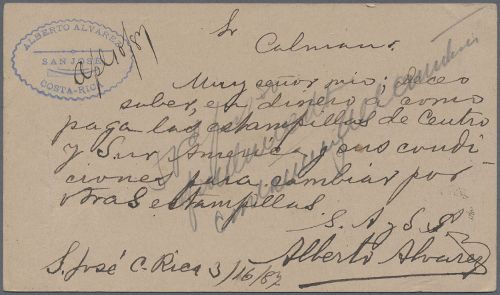 ALBERTO ALVAREZ
SAN JOSÉ
COSTA-RICA
Sr
Calman.
Muy señor mio; deseo
saber, en dinero a como
paga las estampillas de Centro
y Sur America y sus condi-
ciones para cambiar por
otras estampillas.
S. A. y S. S.
Alberto Alvarez
S. José C. Rica 3/16/87